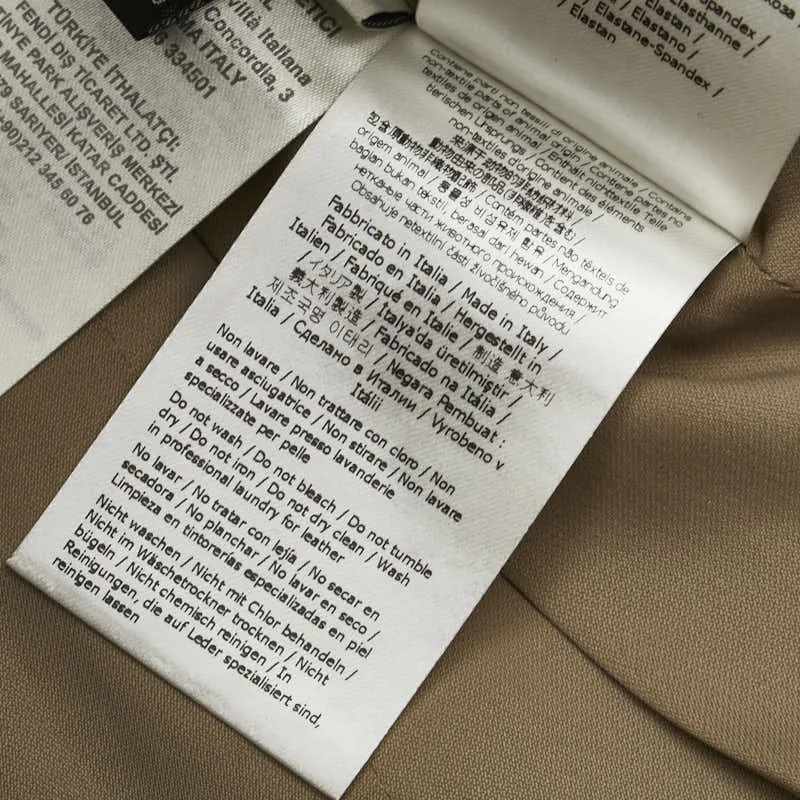 viltà Italiana
Concordia, 3
MA ITALY
06 334501
TÜRKİYE İTHALATÇI:
FENDİ DIŞ TİCARET LTD. ŞTİ.
İNYE PARK ALIŞVERİŞ MERKEZİ
MAHALLESİ KATAR CADDESİ
SARIYER/İSTANBUL
+90)212 345 60 76
Spandex /
Elasthanne /
Elastano /
Elastane-Spandex /
Elastan
Contiene parti non tessili di origine animale / Contains
non-textile parts of animal origin / Contiene partes no
textiles de origen animal / Enthält nichttextile Teile
tierischen Ursprungs / Contient des éléments
non-textiles d'origine animale /
origem animal / Contém partes não têxteis de
bagian bukan tekstil berasal dari hewan / Mengandung
нетканые части животного происхождения / Содержит
Obsahuje netextilní části živočišného původu
Fabbricato in Italia / Made in Italy /
Fabricado en Italia / Hergestellt in
Italien / Fabriqué en Italie / 制造 意大利
/ イタリア製 / İtalya'da üretilmiştir /
義大利製造 / Fabricado na Itália /
제조국명 이태리 / Negara Pembuat :
Italia / Сделано в Италии / Vyrobeno v
Itálii
Non lavare / Non trattare con cloro / Non
usare asciugatrice / Non stirare / Non lavare
a secco / Lavare presso lavanderie
specializzate per pelle
Do not wash / Do not bleach / Do not tumble
dry / Do not iron / Do not dry clean / Wash
in professional laundry for leather
No lavar / No tratar con lejía / No secar en
secadora / No planchar / No lavar en seco /
Limpieza en tintorerías especializadas en piel
Nicht waschen / Nicht mit Chlor behandeln /
Nicht im Wäschetrockner trocknen / Nicht
bügeln / Nicht chemisch reinigen / In
Reinigungen, die auf Leder spezialisiert sind,
reinigen lassen